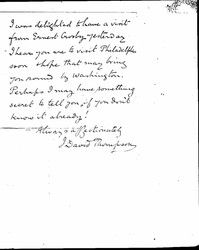 I was delighted to have a visit
from Ernest Crosby yesterday
I hear you are to visit Philadelphia
soon & hope that may bring
you round by Washington.
Perhaps I may have something
secret to tell you, if you don't
know it already!
Always affectionately
J David Thompson